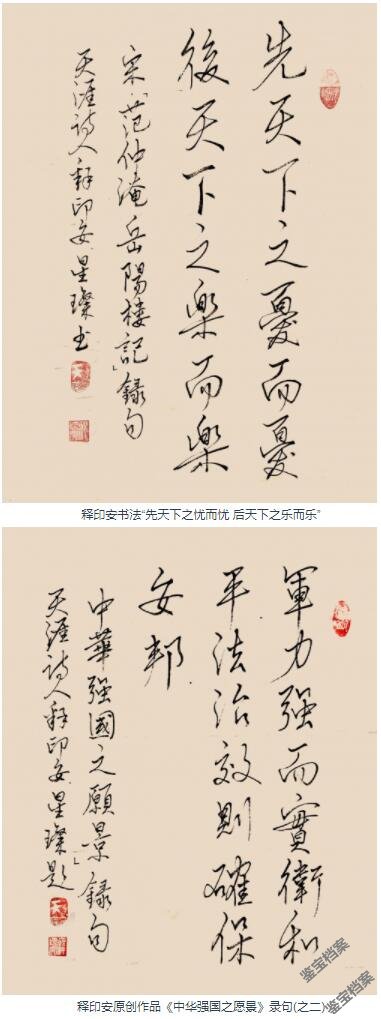 先天下之憂而憂
後天下之樂而樂
宋「范仲淹岳陽樓記」錄句
天涯詩人釋印安星璨书
释印安书法“先天下之忧而忧 后天下之乐而乐”
軍力强而實衛和
平法治效則確保
安邦
中華强國之願景」録句
天涯詩人釋印安星璨题
释印安原创作品《中华强国之愿景》录句(之二)
鉴宝档案
鉴宝档案